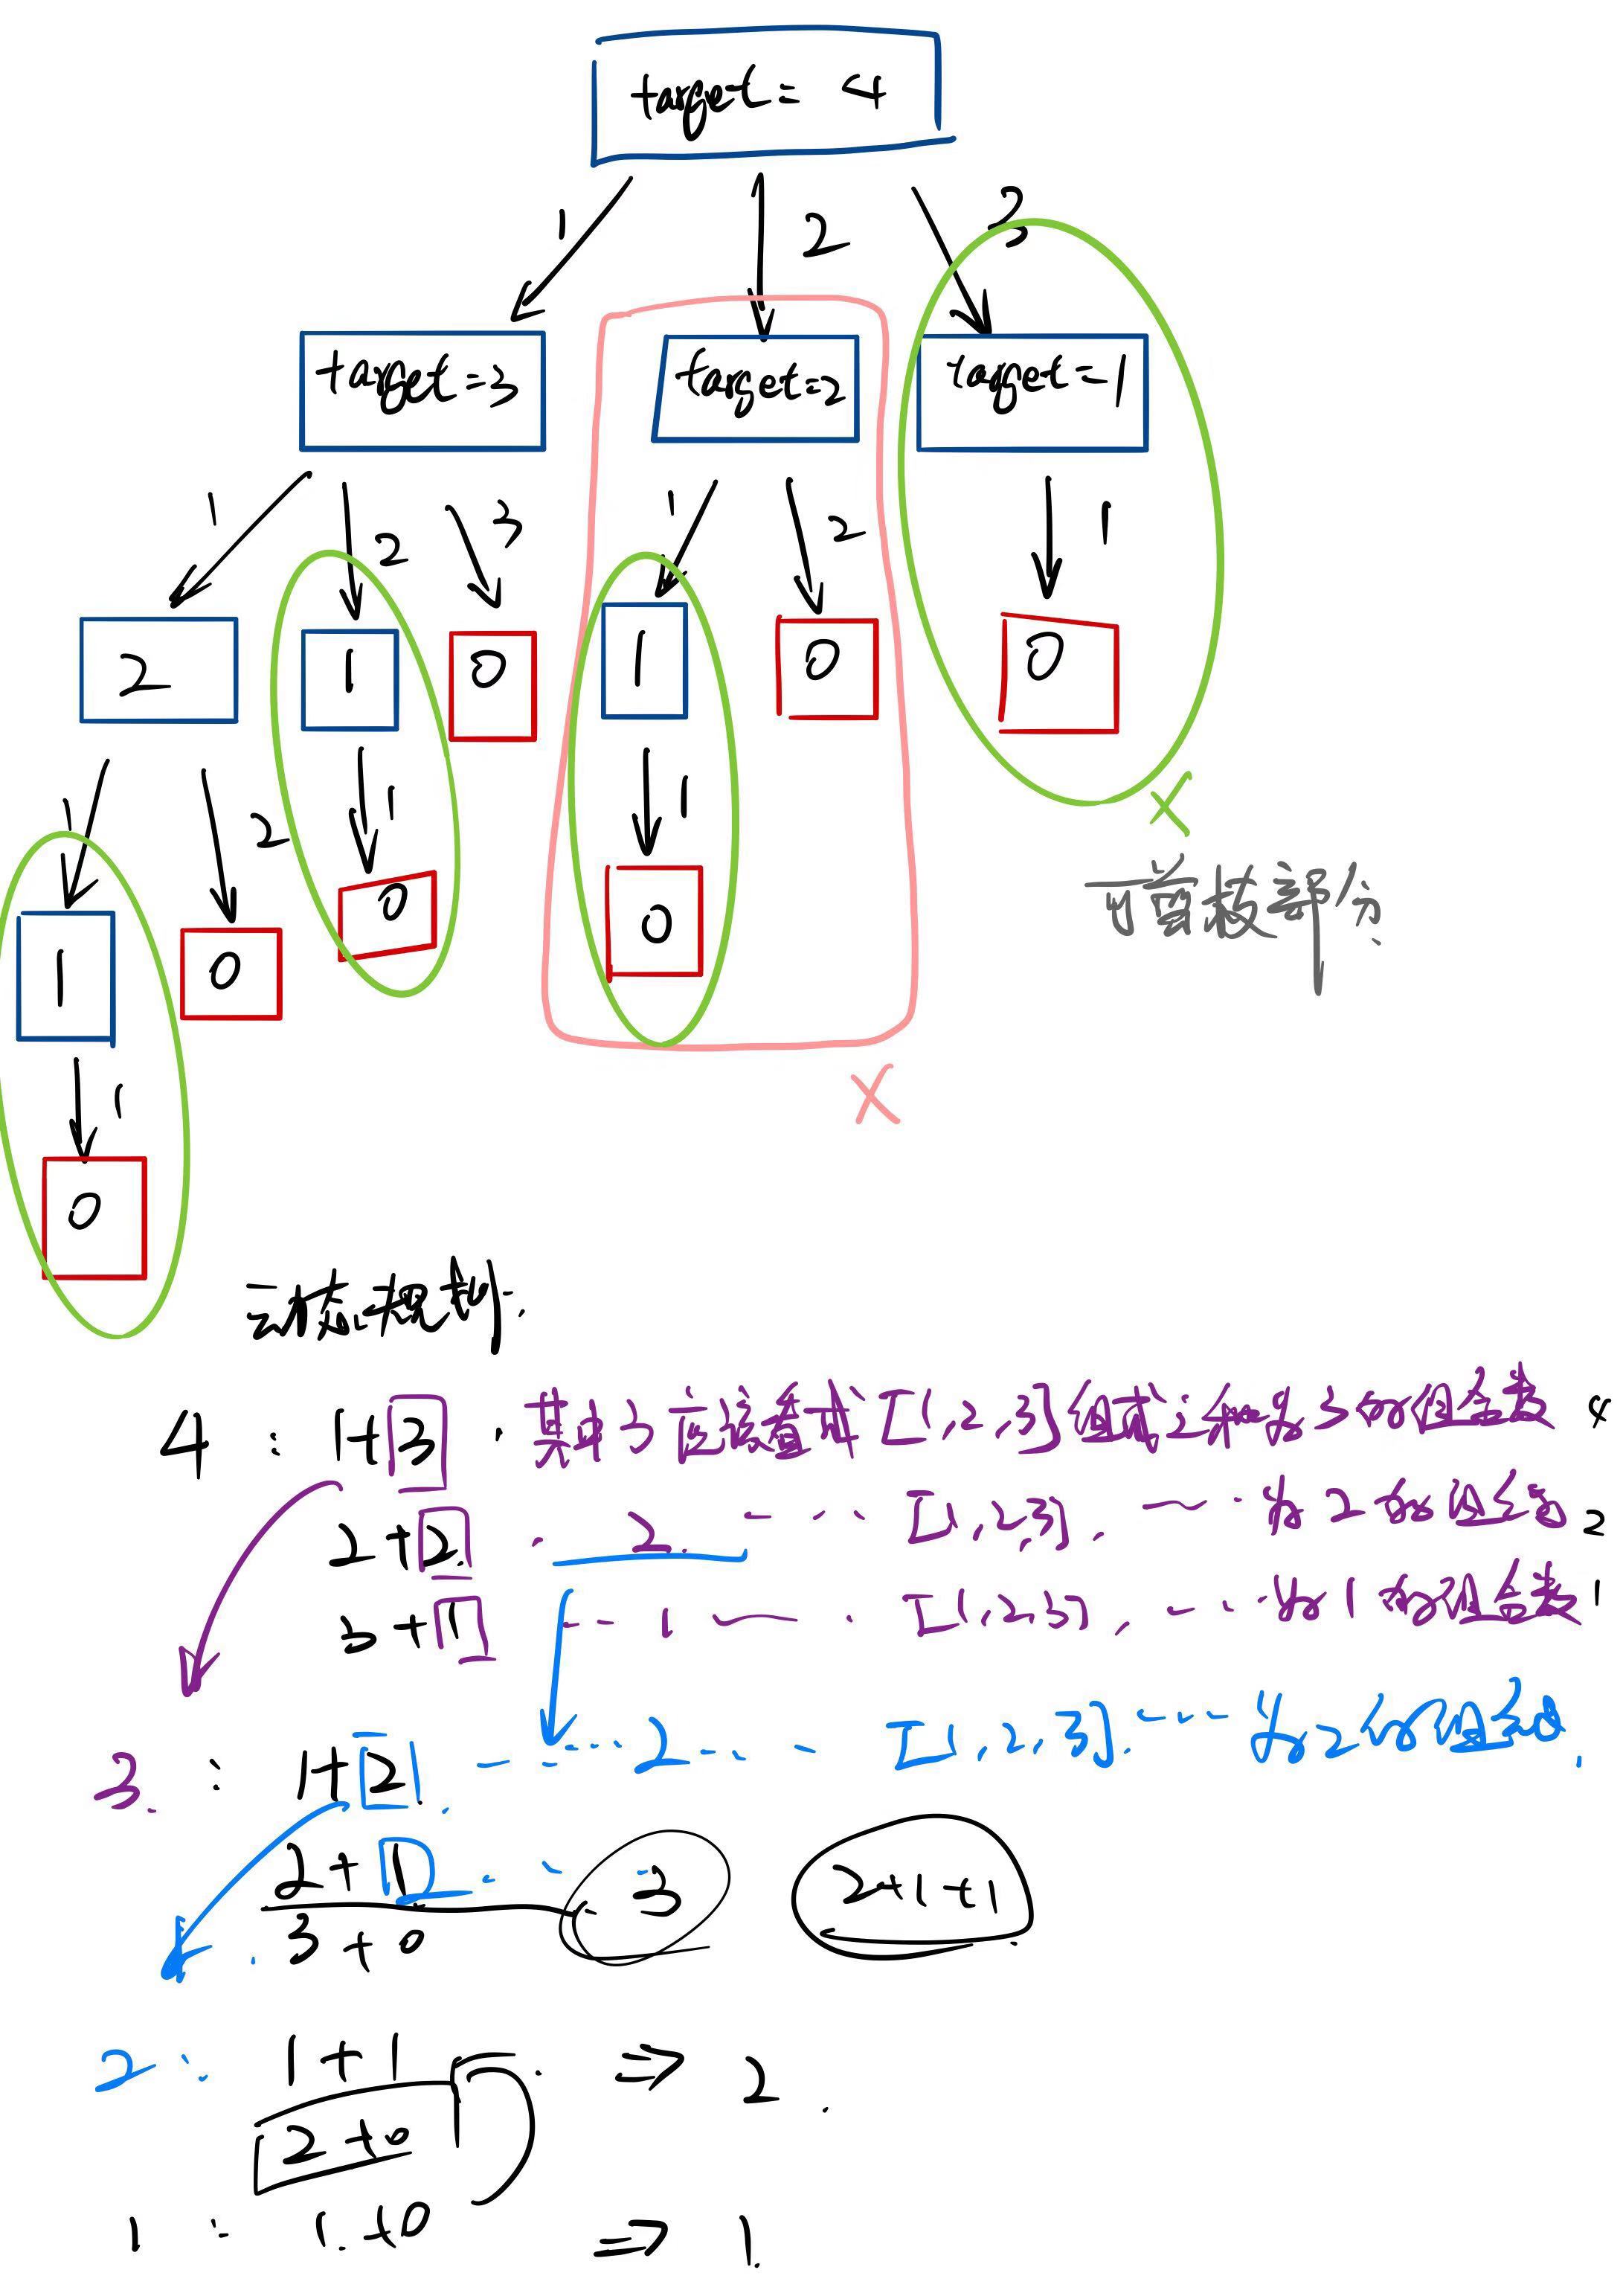 target = 4
1 2 3
target=3 target=2 target=1
1 2 3 1 2 1
2 1 0 1 0 0
1 2 1 1
1 0 0 0
可剪枝部分.
1
0
动态规划.
4 : 1+3 . 其中3应该看成 [1,2,3]组成之和为3的组合数 4
2+2 . 2 … [1,2,3]. … 为2的组合数 2
3+1 … 1 … [1,2,3]. … 为1的组合数 1
3. : 1+2 … 2 … [1,2,3]. … 为2的组合数.
2+1 … 3 2+1+1
3+0
2 : 1+1 ⇒ 2.
2+0
1 : 1+0 ⇒ 1.